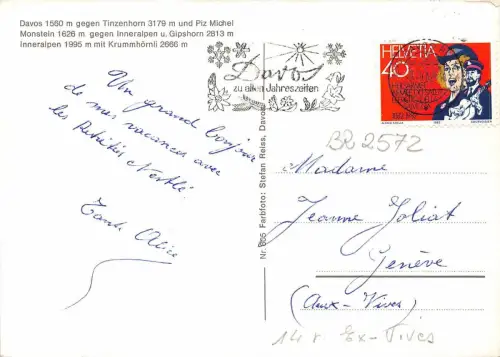 Davos 1560 m gegen Tinzenhorn 3179 m und Piz Michel
Monstein 1626 m gegen Inneralpen u. Gipshorn 2813 m
Inneralpen 1995 m mit Krummhörnli 2666 m
Un grand bonjour
de mes vacances avec
les Retraités Nestlé.
Tante Alice
Davos
zu allen Jahreszeiten
HELVETIA
40
1982
BR 2572
Madame
Jeanne Joliat
Genève
(Aux-Vives)
14 r. Ex-Vives
Nr. 605 Farbfoto: Stefan Reiss, Davos